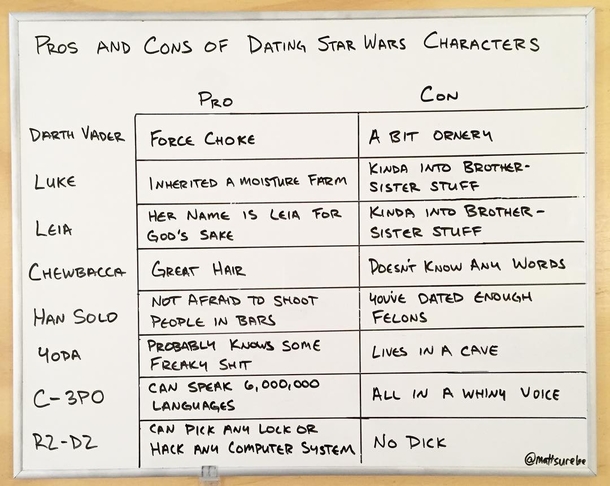 PROS AND CONS OF DATING STAR WARS CHARACTERS
PRO CON
DARTH VADER FORCE CHOKE A BIT ORNERY
LUKE INHERITED A MOISTURE FARM KINDA INTO BROTHER-
SISTER STUFF
LEIA HER NAME IS LEIA FOR
GOD'S SAKE
KINDA INTO BROTHER-
SISTER STUFF
CHEWBACCA GREAT HAIR DOESN'T KNOW ANY WORDS
HAN SOLO NOT AFRAID TO SHOOT
PEOPLE IN BARS
YOU'VE DATED ENOUGH
FELONS
YODA PROBABLY KNOWS SOME
FREAKY SHIT
LIVES IN A CAVE
C-3PO CAN SPEAK 6,000,000
LANGUAGES
ALL IN A WHINY VOICE
R2-D2 CAN PICK ANY LOCK OR
HACK ANY COMPUTER SYSTEM
NO DICK
@mattsurelee